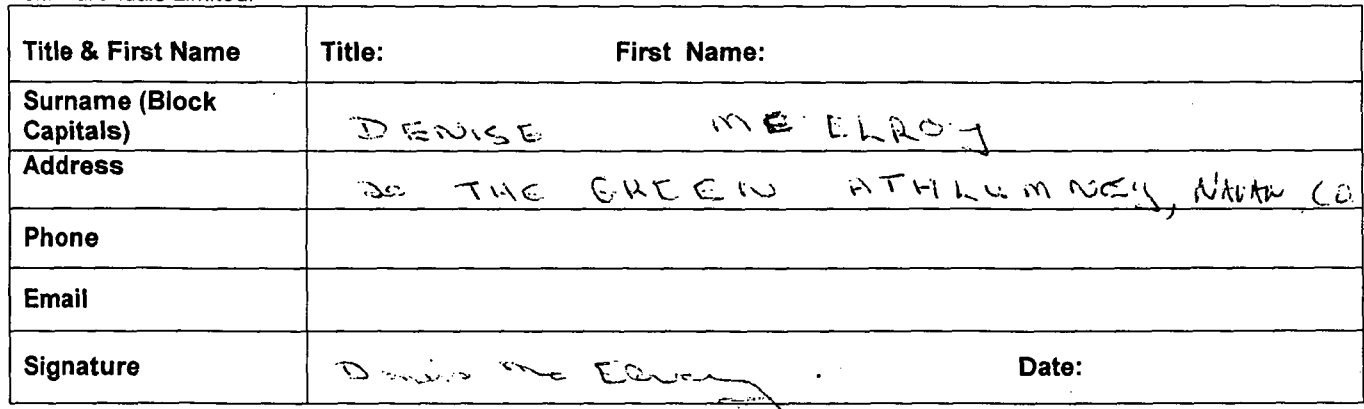 Title & First Name Title: First Name:
Surname (Block
Capitals) DENISE MC ELROY
Address 20 THE GREEN ATHLUMNEY, NAVAN CO
Phone
Email
Signature Denise Mc Elroy Date: